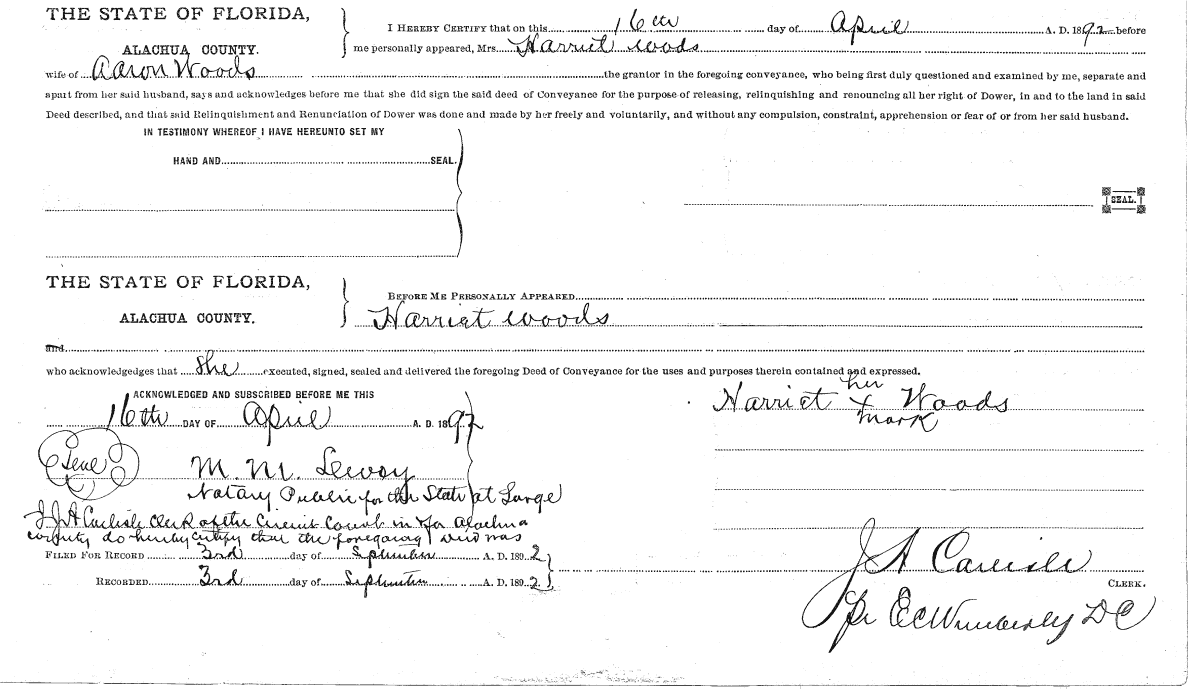 THE STATE OF FLORIDA,
ALACHUA COUNTY.
I HEREBY CERTIFY that on this 16th day of April A. D. 1892 before
me personally appeared, Mrs. Harriet Woods
wife of Aaron Woods the grantor in the foregoing conveyance, who being first duly questioned and examined by me, separate and
apart from her said husband, says and acknowledges before me that she did sign the said deed of Conveyance for the purpose of releasing, relinquishing and renouncing all her right of Dower, in and to the land in said
Deed described, and that said Relinquishment and Renunciation of Dower was done and made by her freely and voluntarily, and without any compulsion, constraint, apprehension or fear of or from her said husband.
IN TESTIMONY WHEREOF I HAVE HEREUNTO SET MY
HAND AND SEAL.
SEAL.
THE STATE OF FLORIDA,
ALACHUA COUNTY.
BEFORE ME PERSONALLY APPEARED
Harriet Woods
and
who acknowledgedges that she executed, signed, sealed and delivered the foregoing Deed of Conveyance for the uses and purposes therein contained and expressed.
ACKNOWLEDGED AND SUBSCRIBED BEFORE ME THIS
16th DAY OF April A. D. 1892
her
Harriet x Woods
mark
Seal
M. M.
Notary Public for the State at Large
I J A Carlisle Clerk of the Circuit Court in & for Alachua
county do hereby certify that the foregoing deed was
FILED FOR RECORD 3rd day of September A. D. 1892
RECORDED 3rd day of September A. D. 1892
J A Carlisle
CLERK.
pr E C Wimberly D C